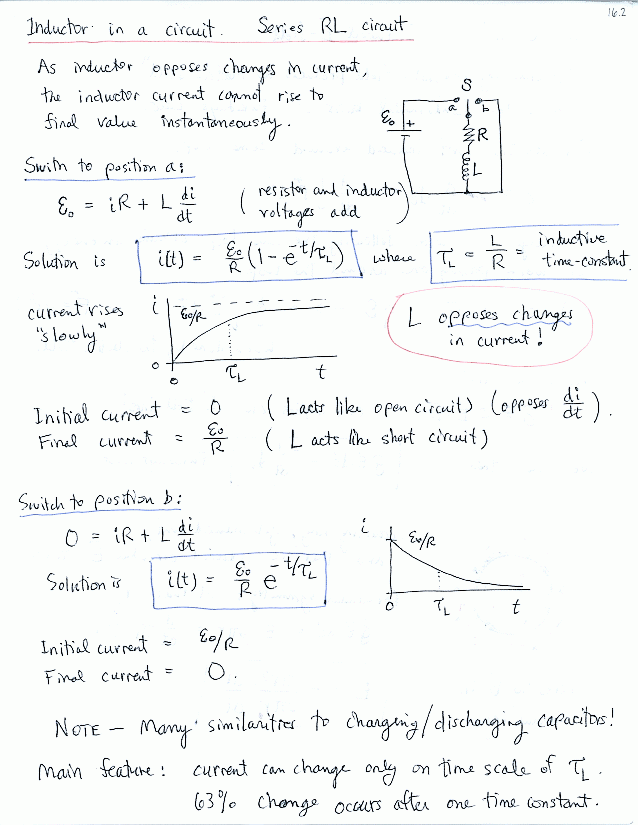 16.2
Inductor in a circuit. Series RL circuit
As inductor opposes changes in current,
the inductor current cannot rise to
final value instantaneously.
S
a b
ℰ₀ +
R
L
Swith to position a:
ℰ₀ = iR + L di/dt ( resistor and inductor voltages add )
Solution is i(t) = ℰ₀/R (1 - e^-t/τ_L) where τ_L = L/R = inductive time-constant.
current rises
"slowly"
i ℰ₀/R
0
0 τ_L t
L opposes changes
in current!
Initial current = 0 ( L acts like open circuit) (opposes di/dt).
Final current = ℰ₀/R ( L acts like short circuit)
Switch to position b:
0 = iR + L di/dt
Solution is i(t) = ℰ₀/R e^-t/τ_L
i ℰ₀/R
0 τ_L t
Initial current = ℰ₀/R
Final current = 0.
NOTE — Many similarities to charging/discharging capacitors!
Main feature: current can change only on time scale of τ_L.
63% change occurs after one time constant.